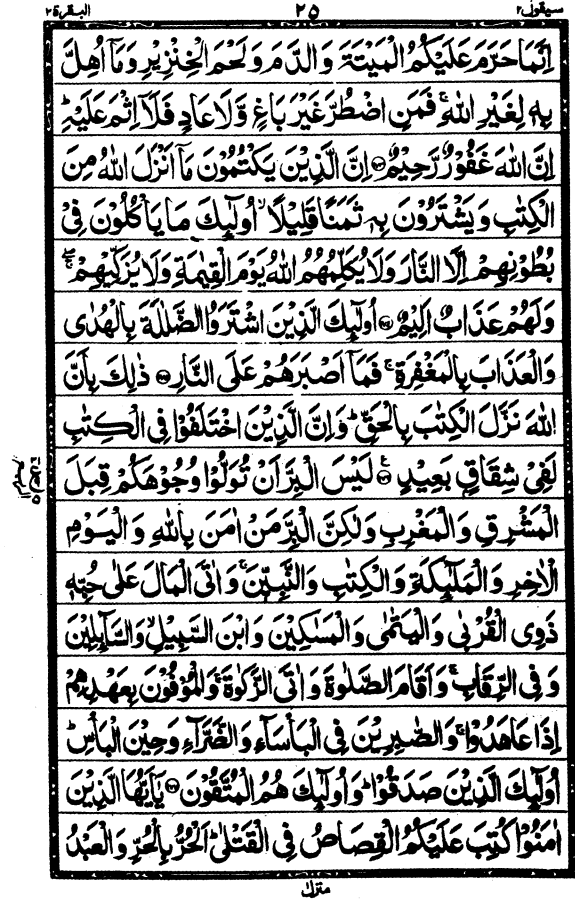 سیقول۲ ٢٥ البقرة٢
اِنَّمَا حَرَّمَ عَلَيْكُمُ الْمَيْتَةَ وَالدَّمَ وَلَحْمَ الْخِنْزِيْرِ وَمَاۤ اُهِلَّ
بِهٖ لِغَيْرِ اللّٰهِ ۚ فَمَنِ اضْطُرَّ غَيْرَ بَاغٍ وَّلَا عَادٍ فَلَاۤ اِثْمَ عَلَيْهِ ؕ
اِنَّ اللّٰهَ غَفُوْرٌ رَّحِيْمٌ ﴿۱۷۳﴾ اِنَّ الَّذِيْنَ يَكْتُمُوْنَ مَاۤ اَنْزَلَ اللّٰهُ مِنَ
الْكِتٰبِ وَيَشْتَرُوْنَ بِهٖ ثَمَنًا قَلِيْلًا ۙ اُولٰٓئِكَ مَا يَاْكُلُوْنَ فِيْ
بُطُوْنِهِمْ اِلَّا النَّارَ وَلَا يُكَلِّمُهُمُ اللّٰهُ يَوْمَ الْقِيٰمَةِ وَلَا يُزَكِّيْهِمْ ۖۚ
وَلَهُمْ عَذَابٌ اَلِيْمٌ ﴿۱۷۴﴾ اُولٰٓئِكَ الَّذِيْنَ اشْتَرَوُا الضَّلٰلَةَ بِالْهُدٰى
وَالْعَذَابَ بِالْمَغْفِرَةِ ۚ فَمَاۤ اَصْبَرَهُمْ عَلَى النَّارِ ﴿۱۷۵﴾ ذٰلِكَ بِاَنَّ
اللّٰهَ نَزَّلَ الْكِتٰبَ بِالْحَقِّ ؕ وَاِنَّ الَّذِيْنَ اخْتَلَفُوْا فِي الْكِتٰبِ
لَفِيْ شِقَاقٍۭ بَعِيْدٍ ﴿۱۷۶﴾ لَيْسَ الْبِرَّ اَنْ تُوَلُّوْا وُجُوْهَكُمْ قِبَلَ
الْمَشْرِقِ وَالْمَغْرِبِ وَلٰكِنَّ الْبِرَّ مَنْ اٰمَنَ بِاللّٰهِ وَالْيَوْمِ
الْاٰخِرِ وَالْمَلٰٓئِكَةِ وَالْكِتٰبِ وَالنَّبِيّٖنَ ۚ وَاٰتَى الْمَالَ عَلٰى حُبِّهٖ
ذَوِي الْقُرْبٰى وَالْيَتٰمٰى وَالْمَسٰكِيْنَ وَابْنَ السَّبِيْلِ ۙ وَالسَّآئِلِيْنَ
وَفِي الرِّقَابِ ۚ وَاَقَامَ الصَّلٰوةَ وَاٰتَى الزَّكٰوةَ ۚ وَالْمُوْفُوْنَ بِعَهْدِهِمْ
اِذَا عَاهَدُوْا ۚ وَالصّٰبِرِيْنَ فِي الْبَاْسَآءِ وَالضَّرَّآءِ وَحِيْنَ الْبَاْسِ ؕ
اُولٰٓئِكَ الَّذِيْنَ صَدَقُوْا ؕ وَاُولٰٓئِكَ هُمُ الْمُتَّقُوْنَ ﴿۱۷۷﴾ يٰۤاَيُّهَا الَّذِيْنَ
اٰمَنُوْا كُتِبَ عَلَيْكُمُ الْقِصَاصُ فِي الْقَتْلٰى ؕ اَلْحُرُّ بِالْحُرِّ وَالْعَبْدُ
منزل